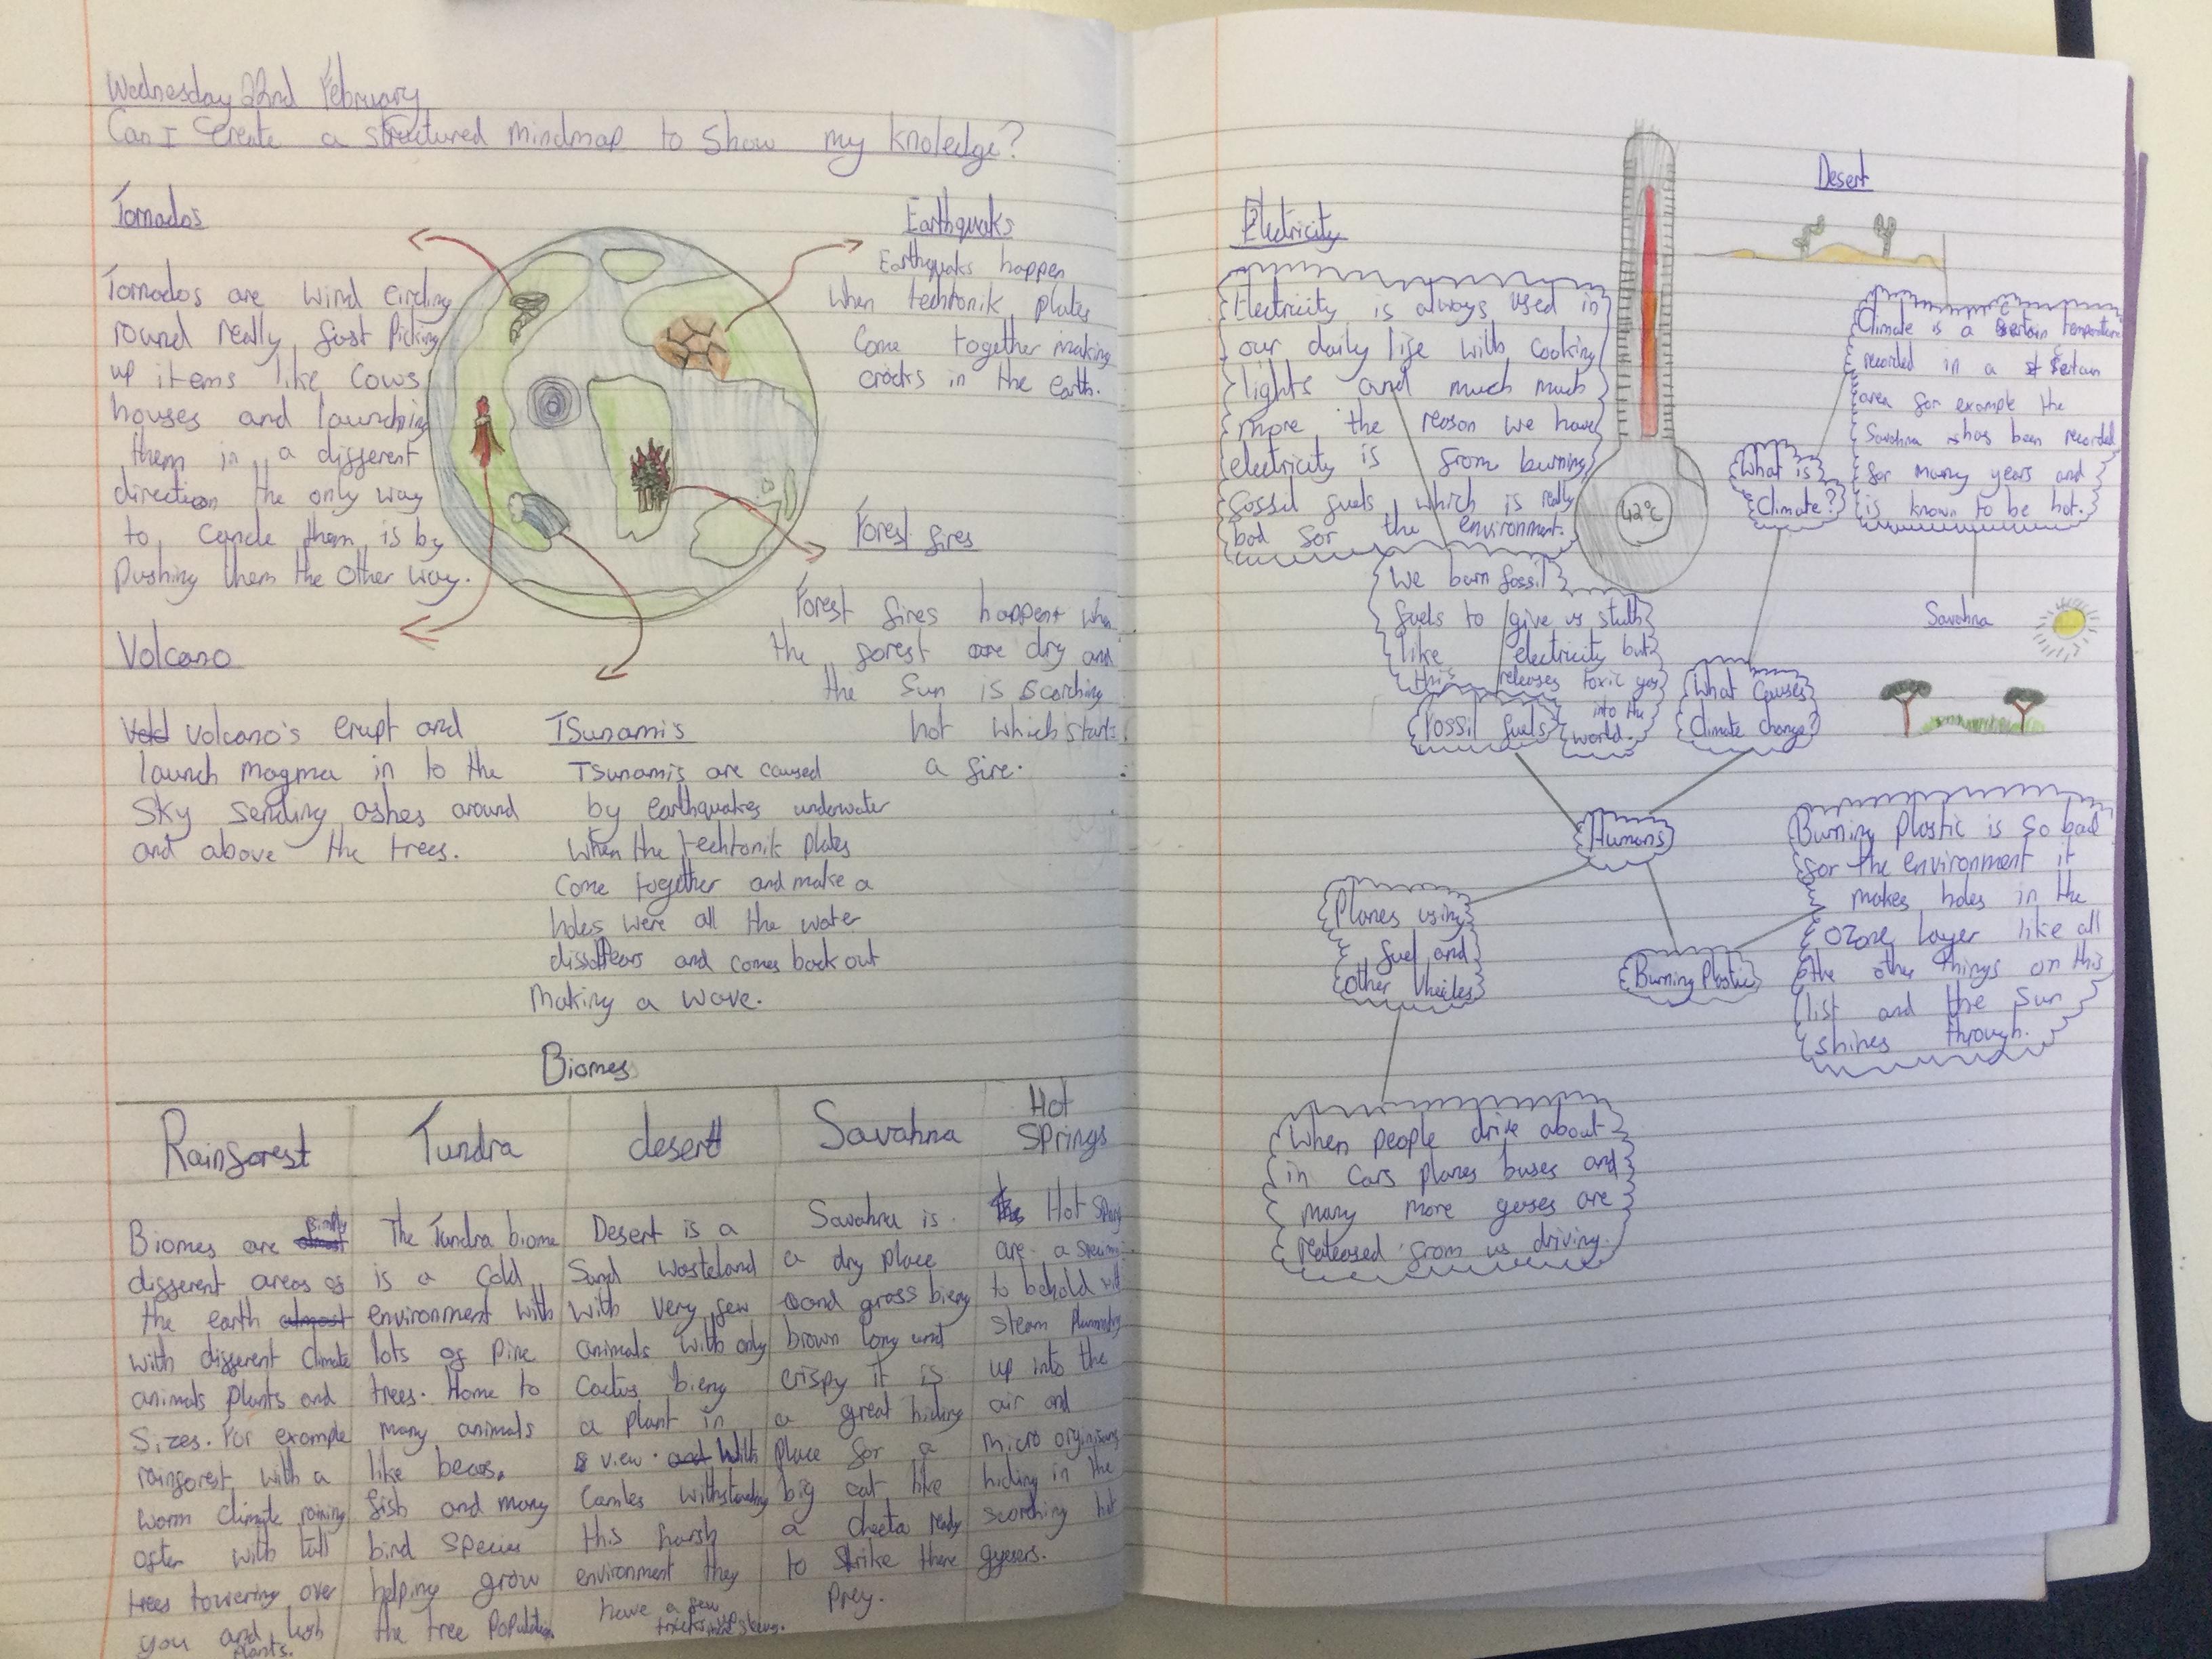 Wednesday 22nd February
Can I Create a structured mindmap to show my knoledge?
Tornados
Tornados are wind circling
round really fast Picking
up items like cows
houses and launching
them in a different
direction the only way
to them is by
Pushing them the other way.
Earthquaks
Earthquaks happen
When techtonik plates
Come together making
cracks in the earth.
Forest fires
Forest fires happen when
the forest are dry and
the Sun is scorching
hot which starts
a fire.
Volcano
volcano's erupt and
launch magma in to the
Sky sending ashes around
and above the trees.
TSunamis
TSunamis are caused
by earthquakes underwater
When the techtonik plates
Come together and make a
holes were all the water
and comes back out
Making a wave.
Biomes
Rainforest
Biomes are
different areas of
the earth almost
with different climate
animals plants and
Sizes. For example
rainforest with a
worm climate raining
ofter with tall
trees towering over
you and lush
plants.
Tundra
The Tundra biome
is a cold
environment with
lots of pine
trees. Home to
many animals
like bears,
fish and many
bird
helping grow
the tree Population.
desert
Desert is a
Sand wasteland
with very few
animals with only
Cactus bieng
a plant in
view. and With
Camles withstanding
this harsh
environment they
have a few
tricks up
Savahna
Savahna is
a dry place
and grass bieng
brown long and
crispy it is
a great hiding
place for a
big cat like
a cheeta ready
to strike there
prey.
Hot
SPrings
Hot
are a
to behold with
steam
up into the
air and
micro
hiding in the
scorching hot
gyesers.
Electricity
Electricity is always used in
our daily life with cooking
lights and much much
more the reason we have
electricity is from burning
fossil fuels which is really
bad for the environment.
We burn fossil
fuels to give us stuth
like electricity but
this releases toxic gas
into the
world.
Fossil fuels
42°c
Desert
Climate is a certain temperature
recorded in a certain
area for example the
Savahna has been recorded
for many years and
is known to be hot.
What is
Climate?
Savahna
What Causes
Climate change?
Humans
Planes using
fuel and
other Vheicles
Burning Plastic
Burning Plastic is so bad
for the environment it
makes holes in the
ozone layer like all
the other things on this
list and the sun
shines through.
When people drive about
in Cars planes buses and
many more gases are
released from us driving.